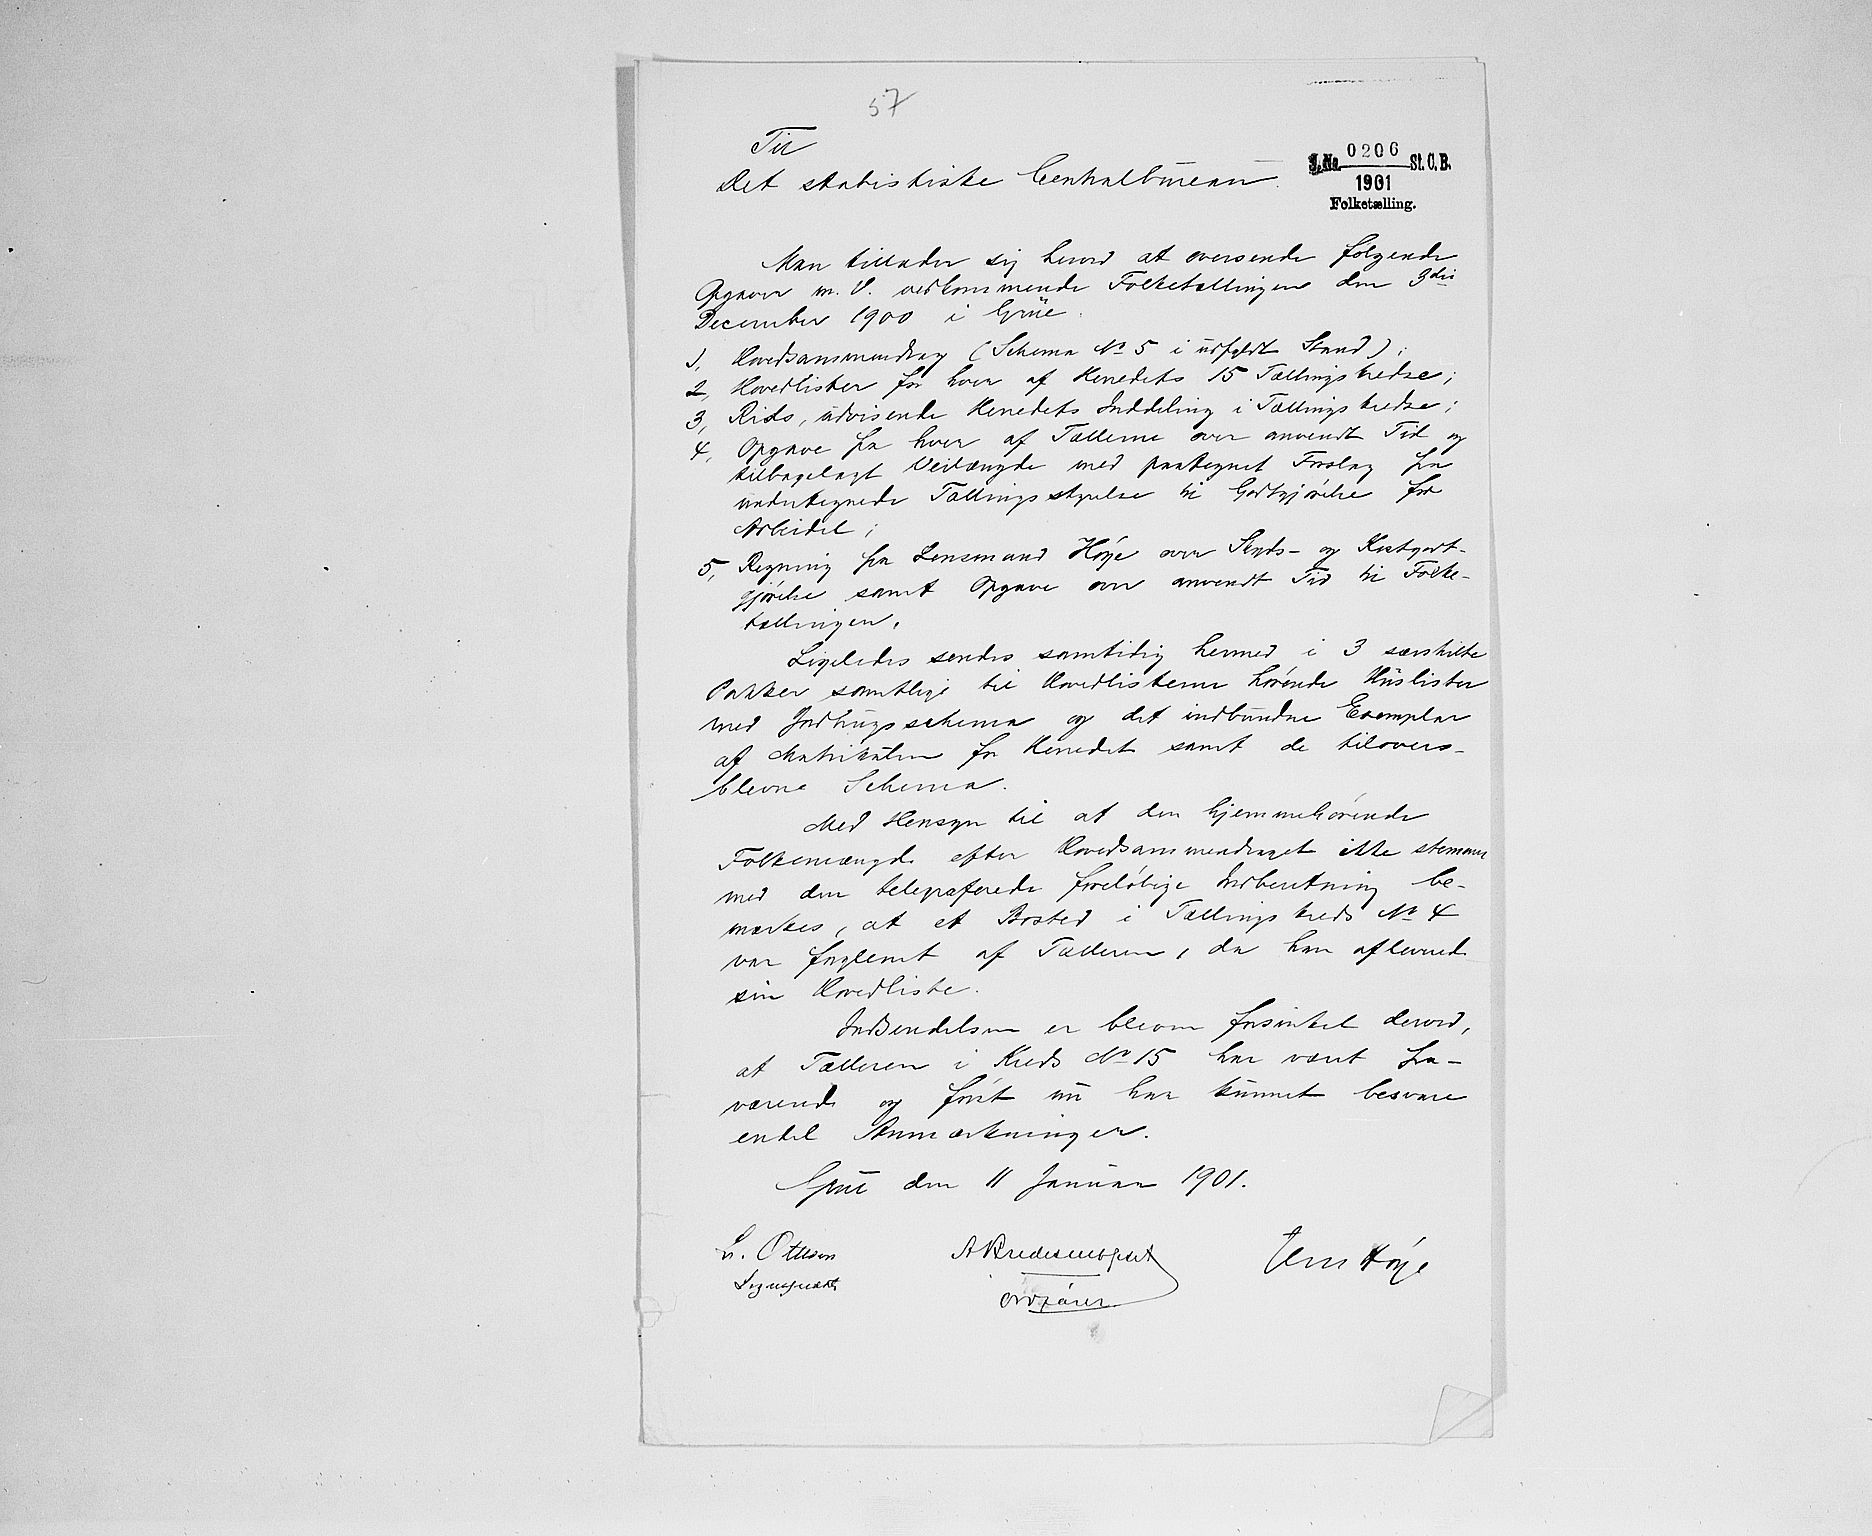 57
Til
Det statistiske Centralbureau.
J.No. 0206 St.C.B.
1901
Folketælling.
Man tillader sig herved at oversende følgende
Opgaver m. V. vedkommende Folketællingen den 3die
December 1900 i Grue.
1, Hovedsammendrag (Schema No 5 i udfyldt Stand);
2, Hovedlister for hver af Herredets 15 Tællingskredse;
3, Rids, udvisende Herredets Inddeling i Tællingskredse;
4, Opgave fra hver af Tællerne over anvendt Tid og
tilbagelagt Veilængde med paategnet Forslag fra
undertegnede Tællingsstyrelse til Godtgjørelse for
Arbeidet;
5, Regning fra Lensmand Høye over Skyds- og Kostgodt-
gjørelse samt Opgave over anvendt Tid til Folke-
tællingen.
Ligeledes sendes samtidig hermed i 3 særskilte
Pakker samtlige til Hovedlisterne hørende Huslister
med Jordbrugsschema og det indbundne Exemplar
af Matrikulen for Herredet samt de tilovers-
blevne Schema.
Med Hensyn til at den hjemmehørende
Folkemængde efter Hovedsammendraget ikke stemmer
med den telegraferede foreløbige Indberetning be-
mærkes, at et Bosted i Tællingskreds No 4
var forglemt af Tælleren, da han afleverede
sin Hovedliste.
Indsendelsen er bleven forsinket derved,
at Tælleren i Kreds No 15 har været fra-
værende og først nu har kunnet besvare
endel Anmærkninger.
Grue den 11 Januar 1901.
L. Ottesen
Sogneprest
A Bredesen
Ordfører
Jens Høye